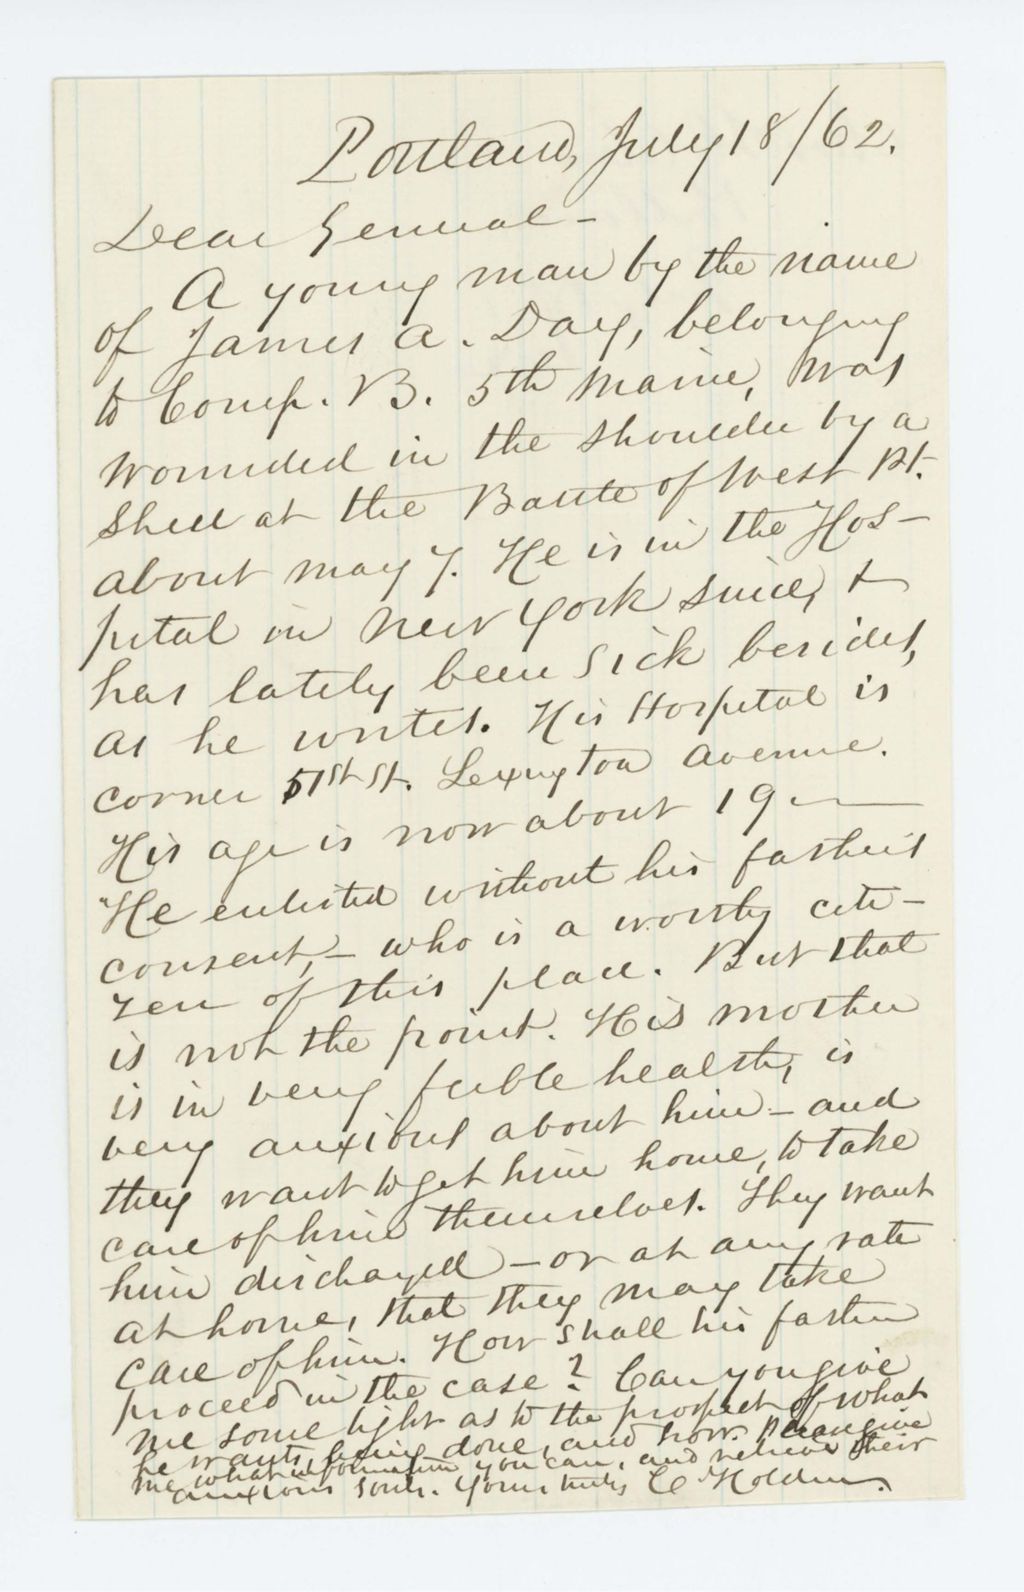 Portland, July 18/62.
Dear General -
A young man by the name
of James A. Day, belonging
to Comp. B. 5th Maine, was
wounded in the shoulder by a
shell at the Battle of West Pt.
about May 7. He is in the Hos-
pital in New York since, &
has lately been sick besides,
as he writes. His Hospital is
corner 51st St. Lexington Avenue.
His age is now about 19 —
He enlisted without his father's
consent, - who is a worthy citi-
zen of this place. But that
is not the point. His mother
is in very feeble health, is
very anxious about him - and
they want to get him home, to take
care of him themselves. They want
him discharged - or at any rate
at home, that they may take
care of him. How shall his father
proceed in the case? Can you give
me some light as to the prospect of what
he wants being done, and how. Please give
me what information you can, and relieve their
anxious souls. Yours truly, C Holden.